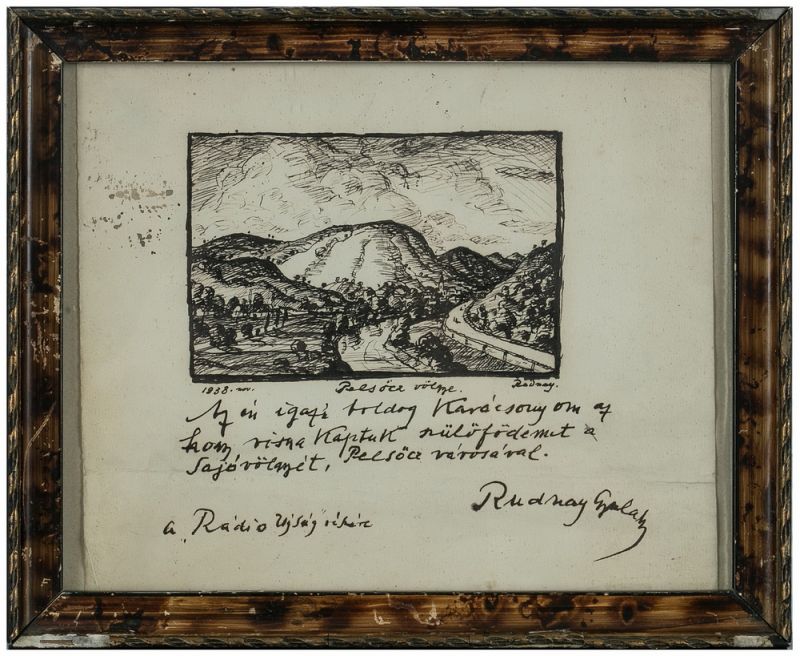 1938. nov. Pelsőcz völgye. Rudnay.
Az én igazi boldog Karácsonyom az
hogy visza kaptuk szülőfödemet a
Sajóvölgyét, Pelsőcz városával.
Rudnay Gyula
a Rádio Ujság részére